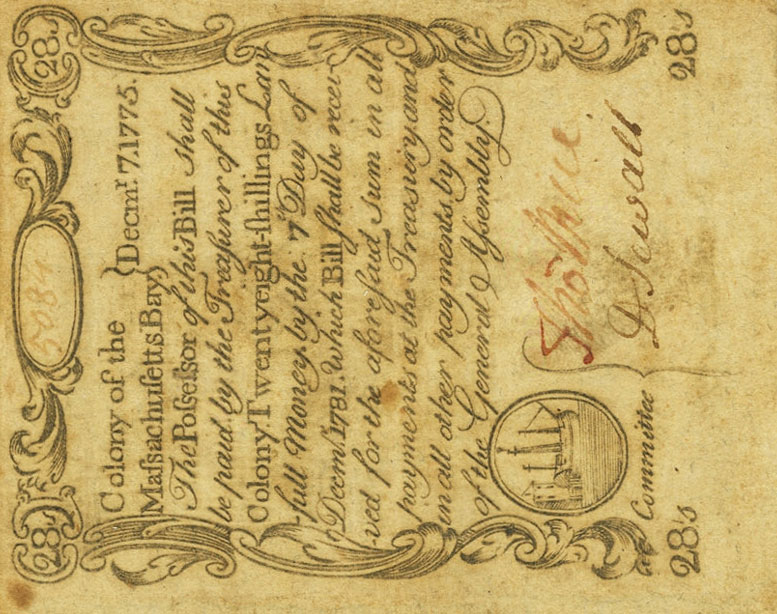 28s 5084 28s
Colony of the
Maſsachuſetts Bay } Decmr. 7. 1775.
The Poſseſsor of this Bill shall
be paid by the Treaſurer of this
Colony Twentyeight-ſhillings Law
-full Money, by the 7th Day of
Decmr. 1781. Which Bill ſhall be recei-
-ved for the aforeſaid sum in all
payments at the Treasury and
in all other payments by order
of the General Aſsembly.
D Sewall
Committee
28's 28's